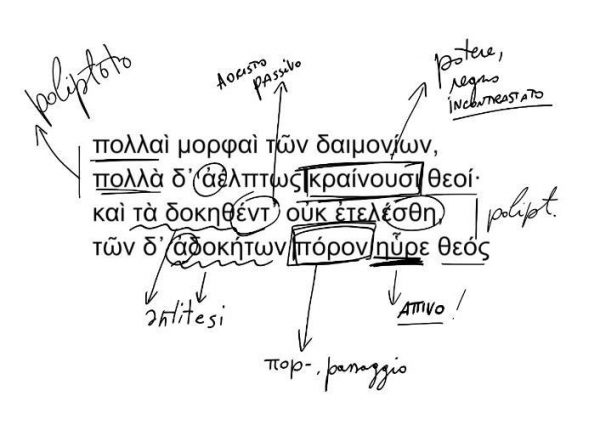 poliptoto
AORISTO
PASSIVO
potere,
regno
INCONTRASTATO
πολλαὶ μορφαὶ τῶν δαιμονίων,
πολλὰ δ᾽ ἀέλπτως κραίνουσι θεοί·
καὶ τὰ δοκηθέντ᾽ οὐκ ἐτελέσθη,
polipt.
τῶν δ᾽ ἀδοκήτων πόρον ηὗρε θεός
antitesi
ATTIVO!
πορ-, passaggio